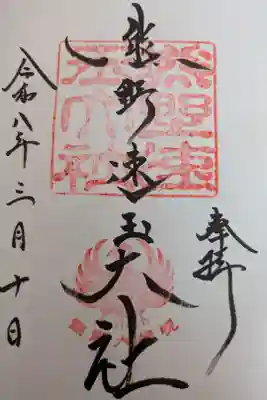 奉拝
熊野速玉大社
令和八年三月十日
熊野速玉大社